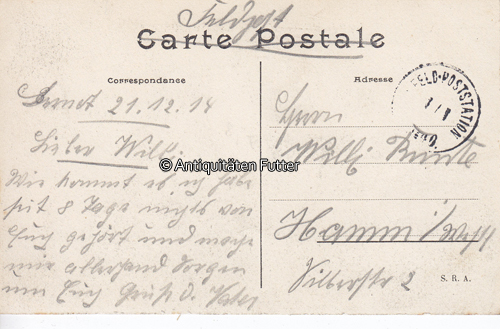 Feldpost
Carte Postale
Correspondance
Adresse
FELD-POSTSTATION
21.12.14
Lieber Willi
© Antiquitäten Futter
Wie kommt es ich habe
seit 8 Tage nichts von
Euch gehört und mache
mir allerhand Sorgen
um Euch Gruß d. Vater
Herrn
Willi
Hamm i/Westf
Silberstr 2
S. R. A.